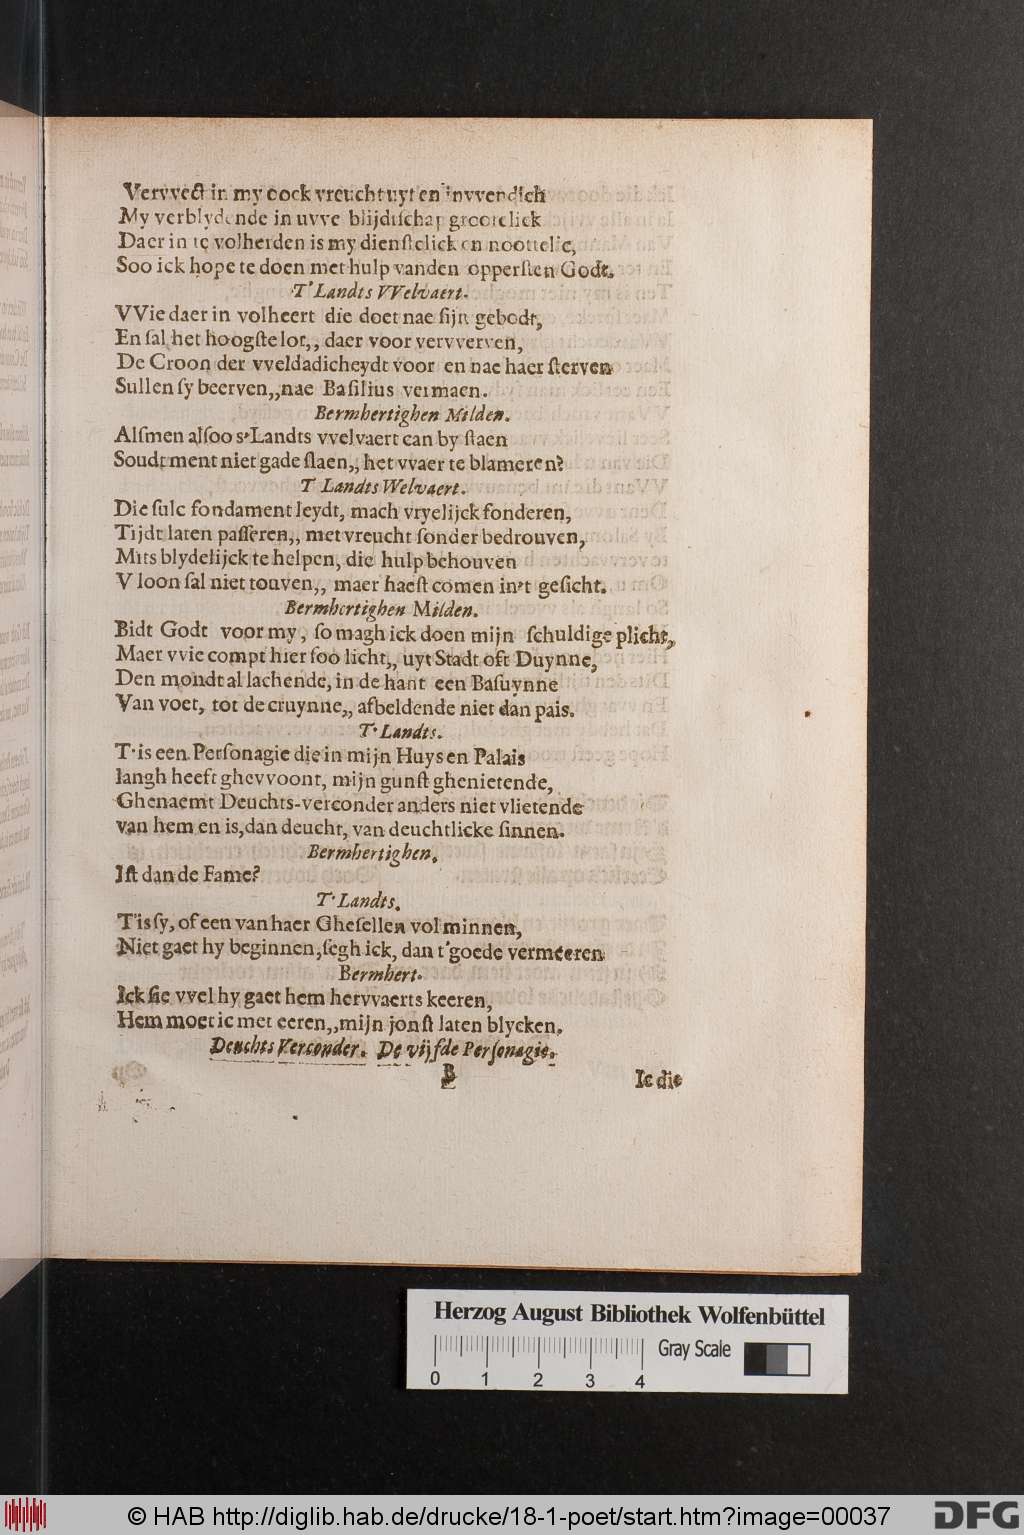 Vervvect in my oock vreucht uyt en invvendich
My verblydende in uvve blijdtschap grootelick
Daer in te volherden is my dienstelick en noottelic,
Soo ick hope te doen met hulp vanden oppersten Godt.
T'Landts VVelvaert.
VVie daer in volheert die doet nae sijn gebodt,
En sal het hoogste lot,, daer voor vervverven,
De Croon der vveldadicheydt voor en nae haer sterven
Sullen sy beerven,,nae Basilius vermaen.
Bermhertighen Milden.
Alsmen alsoo s'Landts vvelvaert can by staen
Soudt ment niet gade slaen,, het vvaer te blameren?
T Landts Welvaert.
Die sulc fondament leydt, mach vryelijck fonderen,
Tijdt laten passeren,, met vreucht sonder bedrouven,
Mits blydelijck te helpen, die hulp behouven
V loon sal niet touven,, maer haest comen in't gesicht.
Bermhertighen Milden.
Bidt Godt voor my, so magh ick doen mijn schuldige plicht,
Maer vvie compt hier soo licht,, uyt Stadt oft Duynne,
Den mondt al lachende, in de hant een Basuynne
Van voet, tot de cruynne,, afbeldende niet dan pais.
T'Landts.
T'is een Personagie die in mijn Huys en Palais
langh heeft ghevvoont, mijn gunst ghenietende,
Ghenaemt Deuchts-verconder anders niet vlietende
van hem en is,dan deucht, van deuchtlicke sinnen.
Bermhertighen.
Ist dan de Fame?
T'Landts.
T'is sy, of een van haer Ghesellen vol minnen,
Niet gaet hy beginnen,segh ick, dan t'goede vermeeren
Bermhert.
Ick sie vvel hy gaet hem hervvaerts keeren,
Hem moet ic met eeren,,mijn jonst laten blycken.
Deuchts Verconder. De vijfde Personagie.
B
Ic die
Herzog August Bibliothek Wolfenbüttel
Gray Scale
0 1 2 3 4
© HAB http://diglib.hab.de/drucke/18-1-poet/start.htm?image=00037
DFG